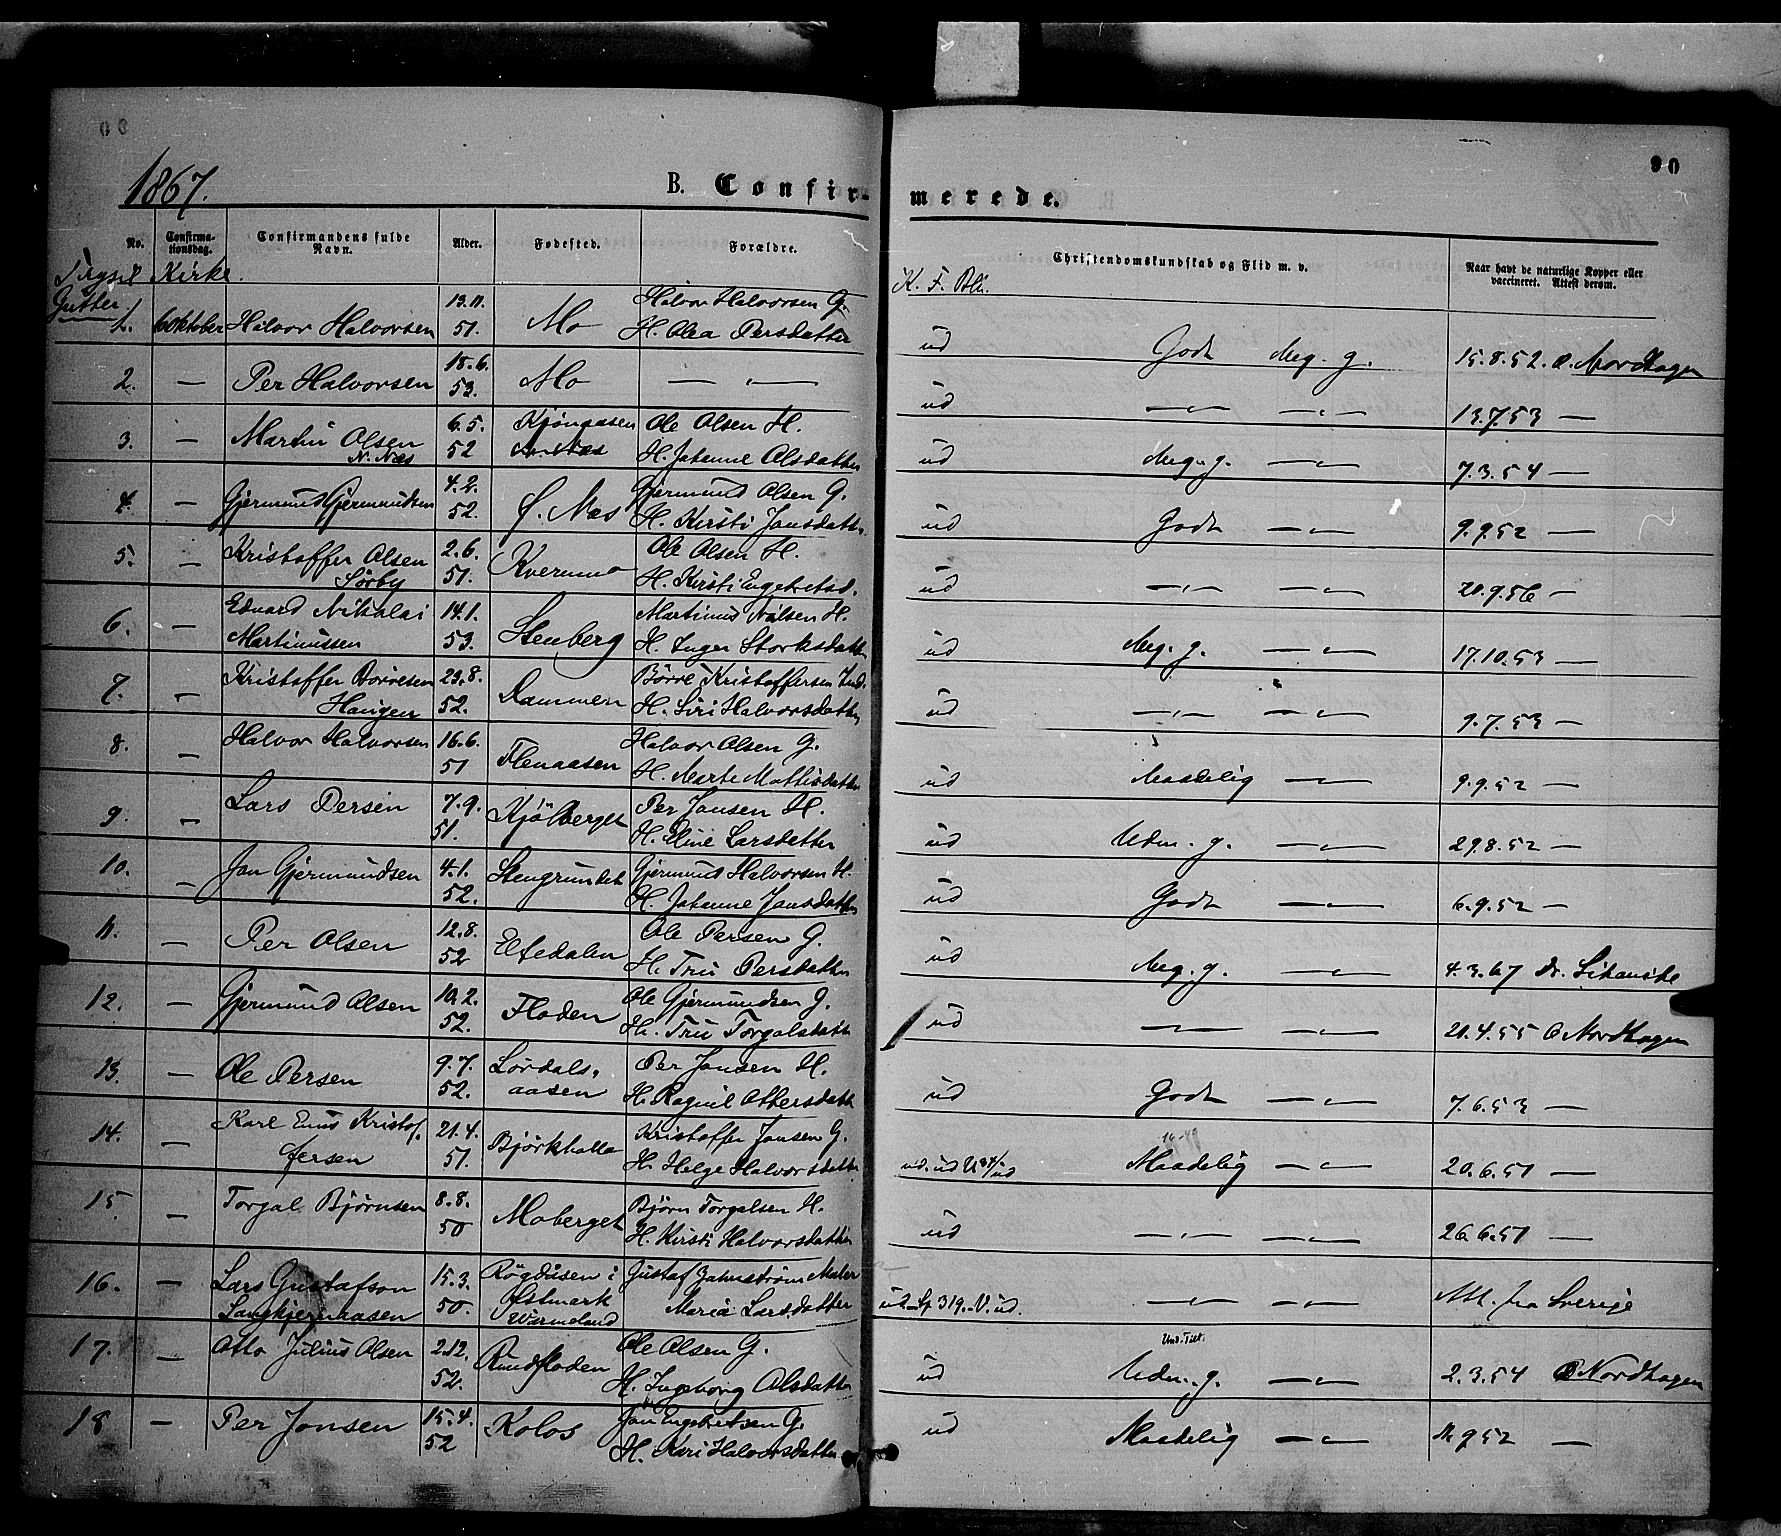 90
1867.
B. Confirmerede.
No.
Confirmationsdag.
Confirmandens fulde Navn.
Alder.
Fødested.
Forældre.
Christendomskundskab og Flid m. v.
Naar havt de naturlige Kopper eller vaccineret. Attest derom.
Trysil Kirke.
Gutter
K. F. Bli.
1. 6 Oktober Halvor Halvorsen 13.11. 51. Mo Halvor Halvorsen G. H. Olea Persdatter ud Godt Meg. g. 15.8.52. O. Nordhagen
2. — Per Halvorsen 18.6. 53. Mo — „ — ud — „ — — „ — 13.7.53 —
3. — Martin Olsen N. Næs 6.5. 52 Kjöngaasen Ole Olsen H. H. Johanne Olsdatter ud Meg. g. — „ — 7.3.54 —
4. — Gjermund Gjermundsen 4.2. 52. Ø. Næs Gjermund Olsen G. H. Kirsti Jonsdatter ud Godt — „ — 9.9.52 —
5. — Kristoffer Olsen Sörby 2.6. 51. Kvernmo Ole Olsen H. H. Kirsti Engebretsd. ud — „ — — „ — 20.9.56 —
6. — Edvard Nikolai Martinussen 14.1. 53. Stenberg Martinus Nilsen H. H. Inger Storksdatter ud Meg. g. — „ — 17.10.53 —
7. — Kristoffer Börresen Haugen 29.8. 52. Dammen Börre Kristoffersen Ind. H. Siri Halvorsdatter ud — „ — — „ — 9.7.53 —
8. — Halvor Halvorsen 16.6. 51 Flenaasen Halvor Olsen G. H. Marte Mattisdatter ud Maadelig — „ — 9.9.52 —
9. — Lars Persen 7.9. 51. Kjölberget Per Jonsen H. H. Eline Larsdatter ud Udm. g. — „ — 29.8.52 —
10. — Jon Gjermundsen 4.1. 52. Stengrundet Gjermund Halvorsen H. H. Johanne Jonsdatter ud Godt — „ — 6.9.52 —
11. — Per Olsen 12.8. 52 Eltedalen Ole Persen G. H. Tru Persdatter ud Meg. g. — „ — 4.3.67 Dr.
12. — Gjermund Olsen 10.2. 52. Floden Ole Gjermundsen G. H. Tru Torgalsdatter ud — „ — — „ — 21.4.55 O Nordhagen
13. — Ole Persen 9.7. 52. Lördalsaasen Per Jonsen H. H. Ragnil Ottersdatter ud Godt — „ — 7.6.53 —
14. — Karl Enus Kristoffersen 21.4. 51. Björkhalla Kristoffer Jonsen G. H. Helge Halvorsdatter ud. ud Maadelig — „ — 20.6.51 —
15 — Torgal Bjørnsen 8.8. 50 Moberget Bjørn Torgalsen H. H. Kirsti Halvorsdatter ud — „ — — „ — 26.6.51 —
16. — Lars Gustafson 15.3. 50. Rögdåsen i Østmark Wærmeland Gustaf Maler Maria Larsdatter ud — „ — — „ — Att. fra Sverige
17. — Otto Julius Olsen 2.12. 52. Rundfloden Ole Olsen G. H. Ingeborg Olsdatter ud Und. Tilt. Udm. g. — „ — 2.3.54 O Nordhagen
18 — Per Jonsen 15.4. 52 Kolos Jon Engebretsen G. H. Kari Halvorsdatter ud Maadelig — „ — 9.52 —